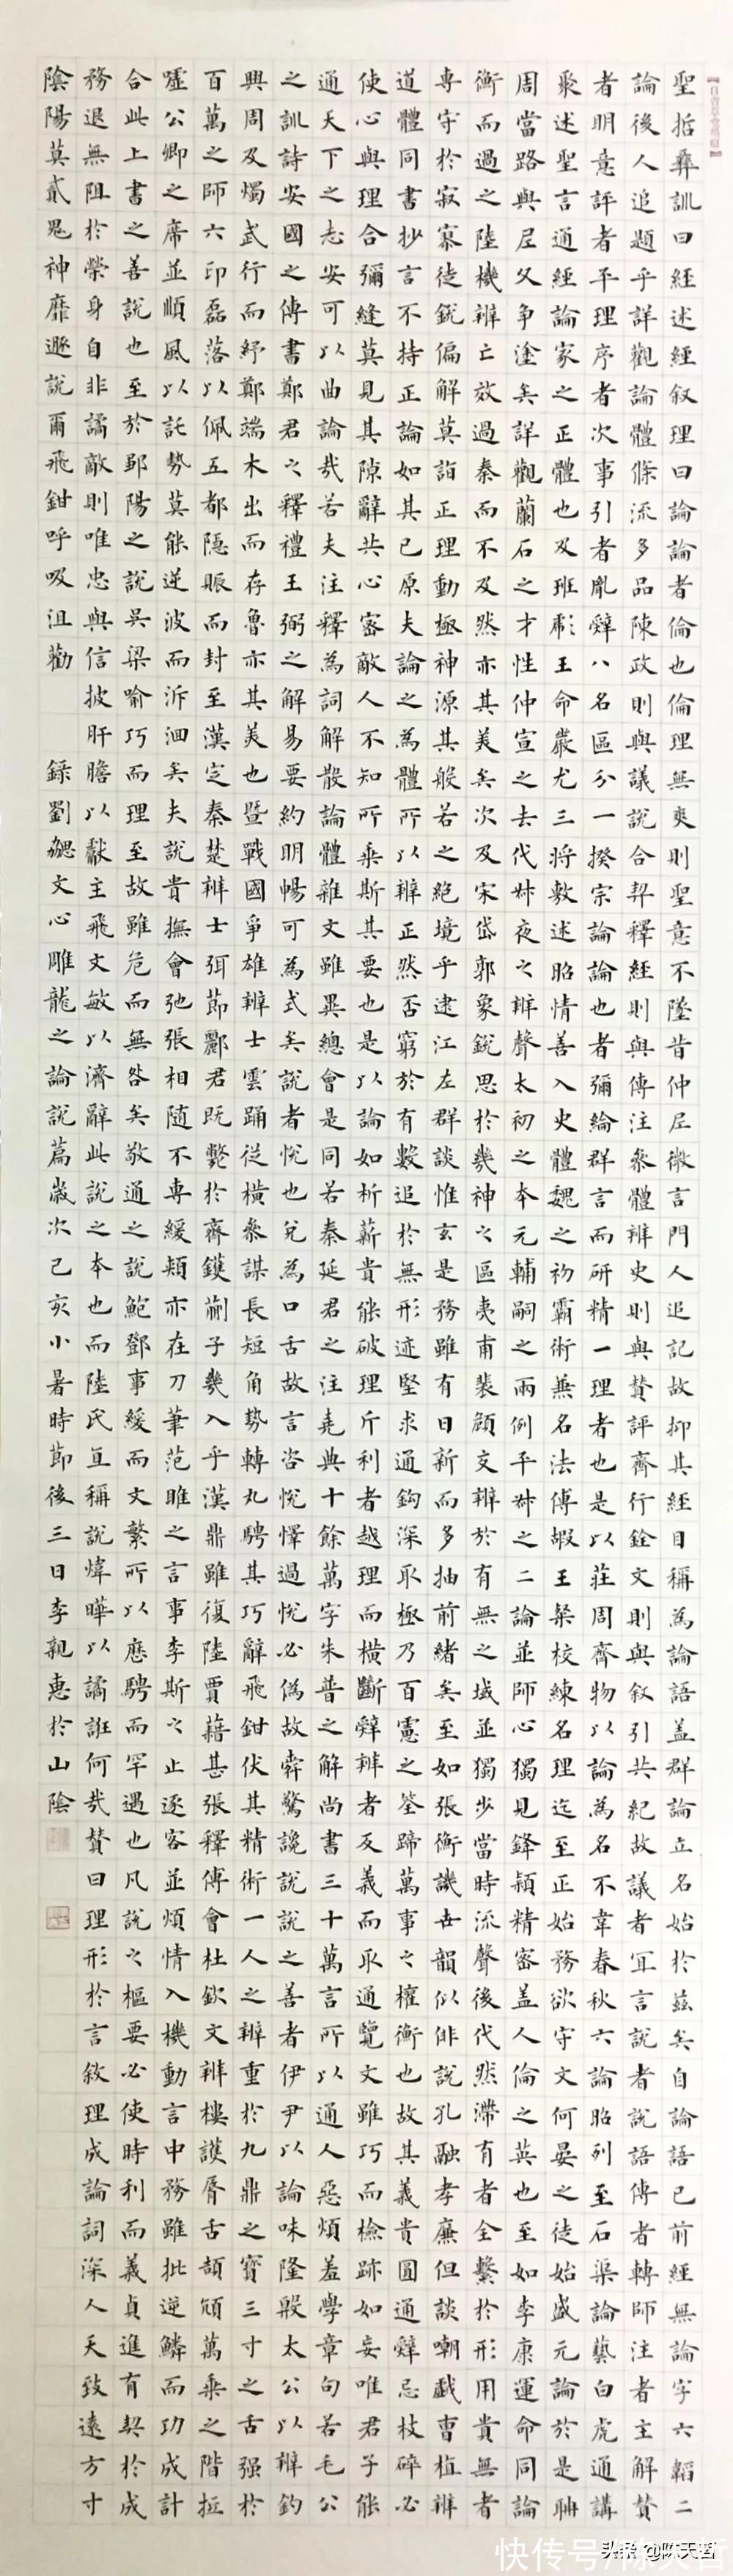 聖哲彝訓曰經述經叙理曰論論者倫也倫理無爽則聖意不墜昔仲尼微言門人追記故抑其經目稱為論語蓋群論立名始於茲矣自論語已前經無論字六韜二
論後人追題乎詳觀論體條流多品陳政則與議說合契釋經則與傳注參體辨史則與贊評齊行銓文則與叙引共紀故議者宜言說者說語傳者轉師注者主解贊
者明意評者平理序者次事引者胤辭八名區分一揆宗論論也者彌綸群言而研精一理者也是以莊周齊物以論為名不韋春秋六論昭列至石渠論藝白虎通講
聚述聖言通經論家之正體也及班彪王命嚴尤三將敷述昭情善入史體魏之初霸術兼名法傅嘏王粲校練名理迄至正始務欲守文何晏之徒始盛元論於是聃
周當路與尼父爭塗矣詳觀蘭石之才性仲宣之去代叔夜之辨聲太初之本元輔嗣之兩例平叔之二論並師心獨見鋒穎精密蓋人倫之英也至如李康運命同論
衡而過之陸機辨亡效過秦而不及然亦其美矣次及宋岱郭象銳思於幾神之區夷甫裴頠交辨於有無之域並獨步當時流聲後代然滯有者全繫於形用貴無者
專守於寂寥徒銳偏解莫詣正理動極神源其般若之絕境乎逮江左群談惟玄是務雖有日新而多抽前緒矣至如張衡譏世韻似俳說孔融孝廉但談嘲戲曹植辨
道體同書抄言不持正論如其已原夫論之為體所以辨正然否窮於有數追於無形迹堅求通鉤深取極乃百慮之筌蹄萬事之權衡也故其義貴圓通辭忌枝碎必
使心與理合彌縫莫見其隙辭共心密敵人不知所乘斯其要也是以論如析薪貴能破理斤利者越理而橫斷辭辨者反義而取通覽文雖巧而檢跡如妄唯君子能
通天下之志安可以曲論哉若夫注釋為詞解散論體雜文雖異總會是同若秦延君之注堯典十餘萬字朱普之解尚書三十萬言所以通人惡煩羞學章句若毛公
之訓詩安國之傳書鄭君之釋禮王弼之解易要約明暢可為式矣說者悅也兌為口舌故言咨悅懌過悅必偽故舜驚讒說說之善者伊尹以論味隆殷太公以辨釣
興周及燭武行而紓鄭端木出而存魯亦其美也暨戰國爭雄辨士雲踊從橫參謀長短角勢轉丸騁其巧辭飛鉗伏其精術一人之辨重於九鼎之寶三寸之舌强於
百萬之師六印磊落以佩五都隱賑而封至漢定秦楚辨士弭節酈君既斃於齊鑊蒯子幾入乎漢鼎雖復陸賈藉甚張釋傅會杜欽文辨樓護脣舌頡頏萬乘之階抵
噓公卿之席並順風以託勢莫能逆波而泝洄矣夫說貴撫會弛張相隨不專緩頰亦在刀筆范雎之言事李斯之止逐客並煩情入機動言中務雖批逆鱗而功成計
合此上書之善說也至於鄒陽之說吳梁喻巧而理至故雖危而無咎矣敬通之說鮑鄧事緩而文繁所以歷騁而罕遇也凡說之樞要必使時利而義貞進有契於成
務退無阻於榮身自非譎敵則唯忠與信披肝膽以獻主飛文敏以濟辭此說之本也而陸氏直稱說煒曄以譎誑何哉贊曰理形於言敘理成論詞深人天致遠方寸
陰陽莫貳鬼神靡遯說爾飛鉗呼吸沮勸 錄劉勰文心雕龍之論說篇歲次己亥小暑時節後三日李親惠於山陰